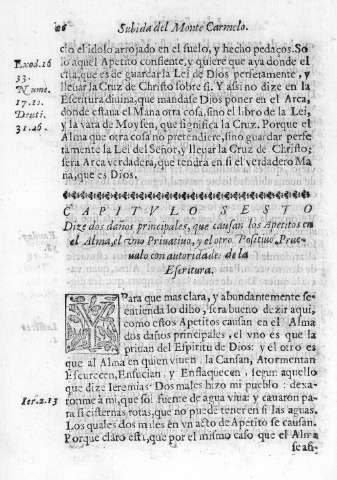 26 Subida del Monte Carmelo.
cto el idolo arrojado en el suelo, y hecho pedaços. So
lo aquel Apetito consiente, y quiere que aya donde el
està, que es de guardar la Lei de Dios perfetamente, y
llevar la Cruz de Christo sobre si. Y assi no dize en la
Escritura divina, que mandase Dios poner en el Arca,
donde estava el Mana otra cosa, sino el libro de la Lei,
y la vara de Moysen, que significa la Cruz. Porque el
Alma que otra cosa no pretendiere, sino guardar perfe
tamente la Lei del Señor, y llevar la Cruz de Christo;
sera Arca verdadera, que tendra en si el verdadero Ma
na, que es Dios.
Exod. 16
33.
Nume.
17. 10.
Deuti.
31. 26.
CAPITVLO SESTO
Dize dos daños principales, que causan los Apetitos en
el Alma, el vno Privativo, y el otro Positivo Prue-
valo con autoridades de la
Escritura.
Y Para que mas clara, y abundantemente se
entienda lo dího, sera bueno dezir aqui,
como estos Apetitos causan en el Alma
dos daños principales, el vno es que la
privan del Espiritu de Dios: y el otro es
que al Alma en quien viven la Cansan, Atormentan
Escurecen, Ensucian, y Enflaquecen, segun aquello
que dize Ieremias. Dos males hizo mi pueblo: dexa-
ronme à mi, que soi fuente de agua viva: y cavaron pa-
ra si cisternas rotas, que no puede tener en si las aguas.
Los quales dos males en vn acto de Apetito se causan.
Porque claro està, que por el mismo caso que el Alma
Ier. 2. 13
se afi-